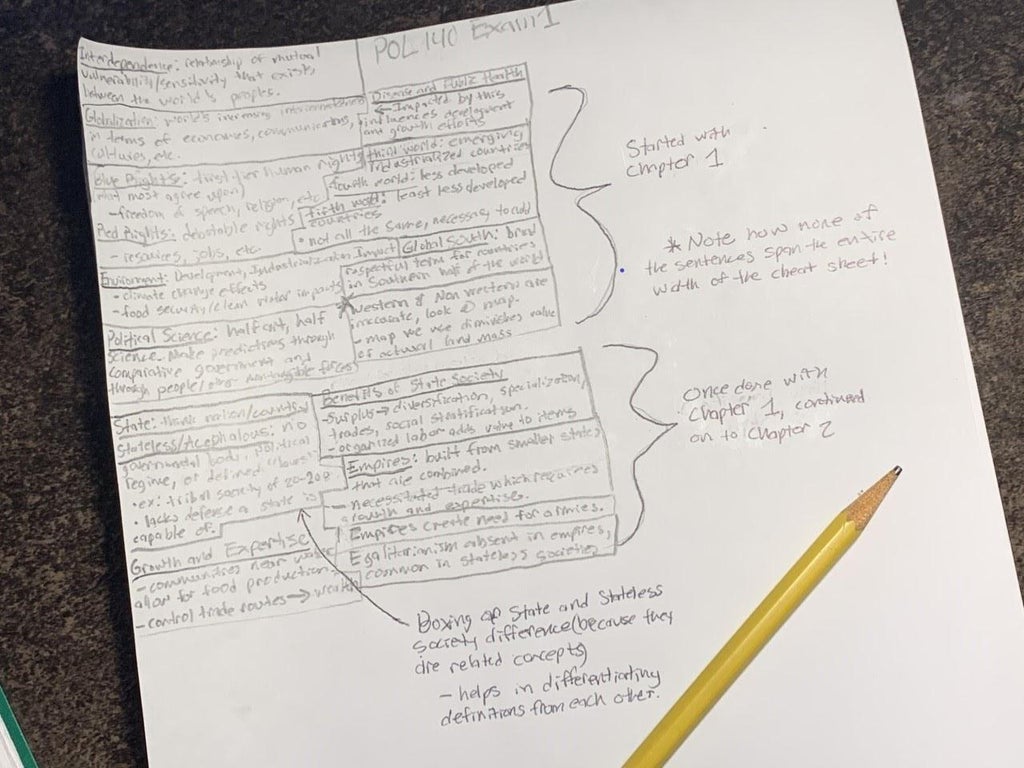 POL 140 Exam 1
Interdependence: relationship of mutual
vulnerability/sensitivity that exists
between the world's peoples.
Globalization: world's increasing interconnectedness
in terms of economies, communications,
cultures, etc.
Disease and Public Health
← Impacted by this
influences development
and growth efforts
Blue Rights: first tier human rights
that most agree upon
- freedom of speech, religion, etc.
Red Rights: debatable rights
- resources, jobs, etc.
third world: emerging
industrialized countries
fourth world: less developed
fifth world: least less developed
countries
• not all the same, necessary to add
Environment: Development, Industrialization Impact
- climate change effects
- food security/clean water impacts
Global South: broad
respectful term for countries
in Southern half of the world
Political Science: half art, half
science. Make predictions through
comparative government and
through people/
* Western & Non western are
inaccurate, look @ map.
- map we use diminishes value
of actual land mass
State: nation/country
Stateless/Acephalous: no
governmental body, political
regime, or defined
• ex: tribal society of 20-208
• lacks defense a state is
capable of.
Growth and Expertise
- communities near water
allow for food production
- control trade routes → wealth
Benefits of State Society
- Surplus → diversification, specialization,
trades, social stratification.
- organized labor adds value to items
Empires: built from smaller states
that are combined.
- necessitated trade which requires
growth and expertise.
Empires create need for armies.
Egalitarianism absent in empires,
common in stateless societies
Started with
Chapter 1
* Note how none of
the sentences span the entire
width of the cheat sheet!
Once done with
Chapter 1, continued
on to Chapter 2
Boxing of State and Stateless
society difference (because they
are related concepts)
- helps in differentiating
definitions from each other.